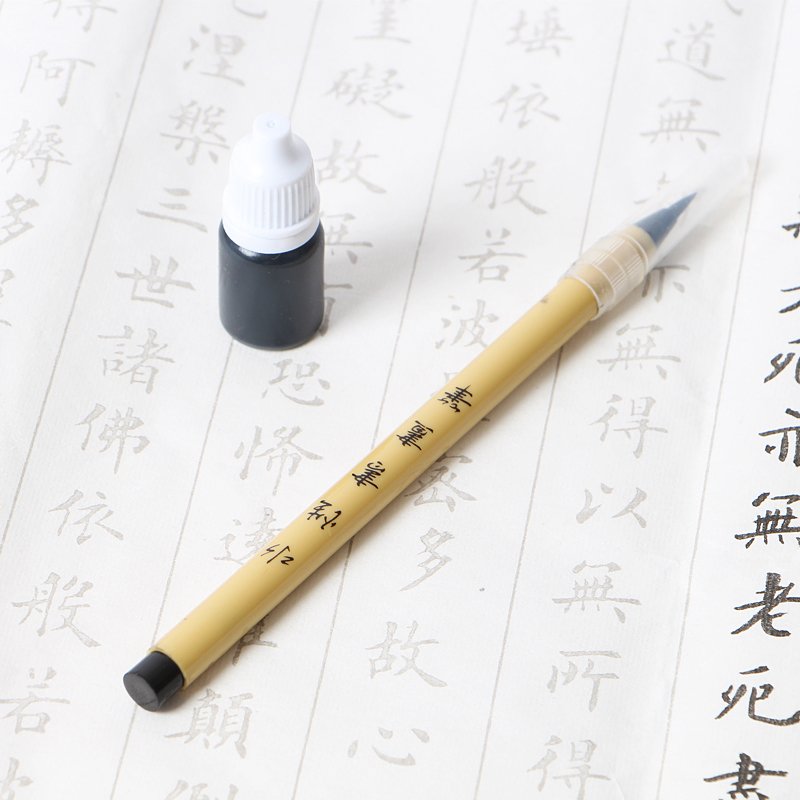 無老死亦無老死盡
道無亦無得以無所得
埵依般若波蜜多故心
罣礙故無有恐怖遠離顛倒
涅槃三世諸佛依般若波
得阿耨多